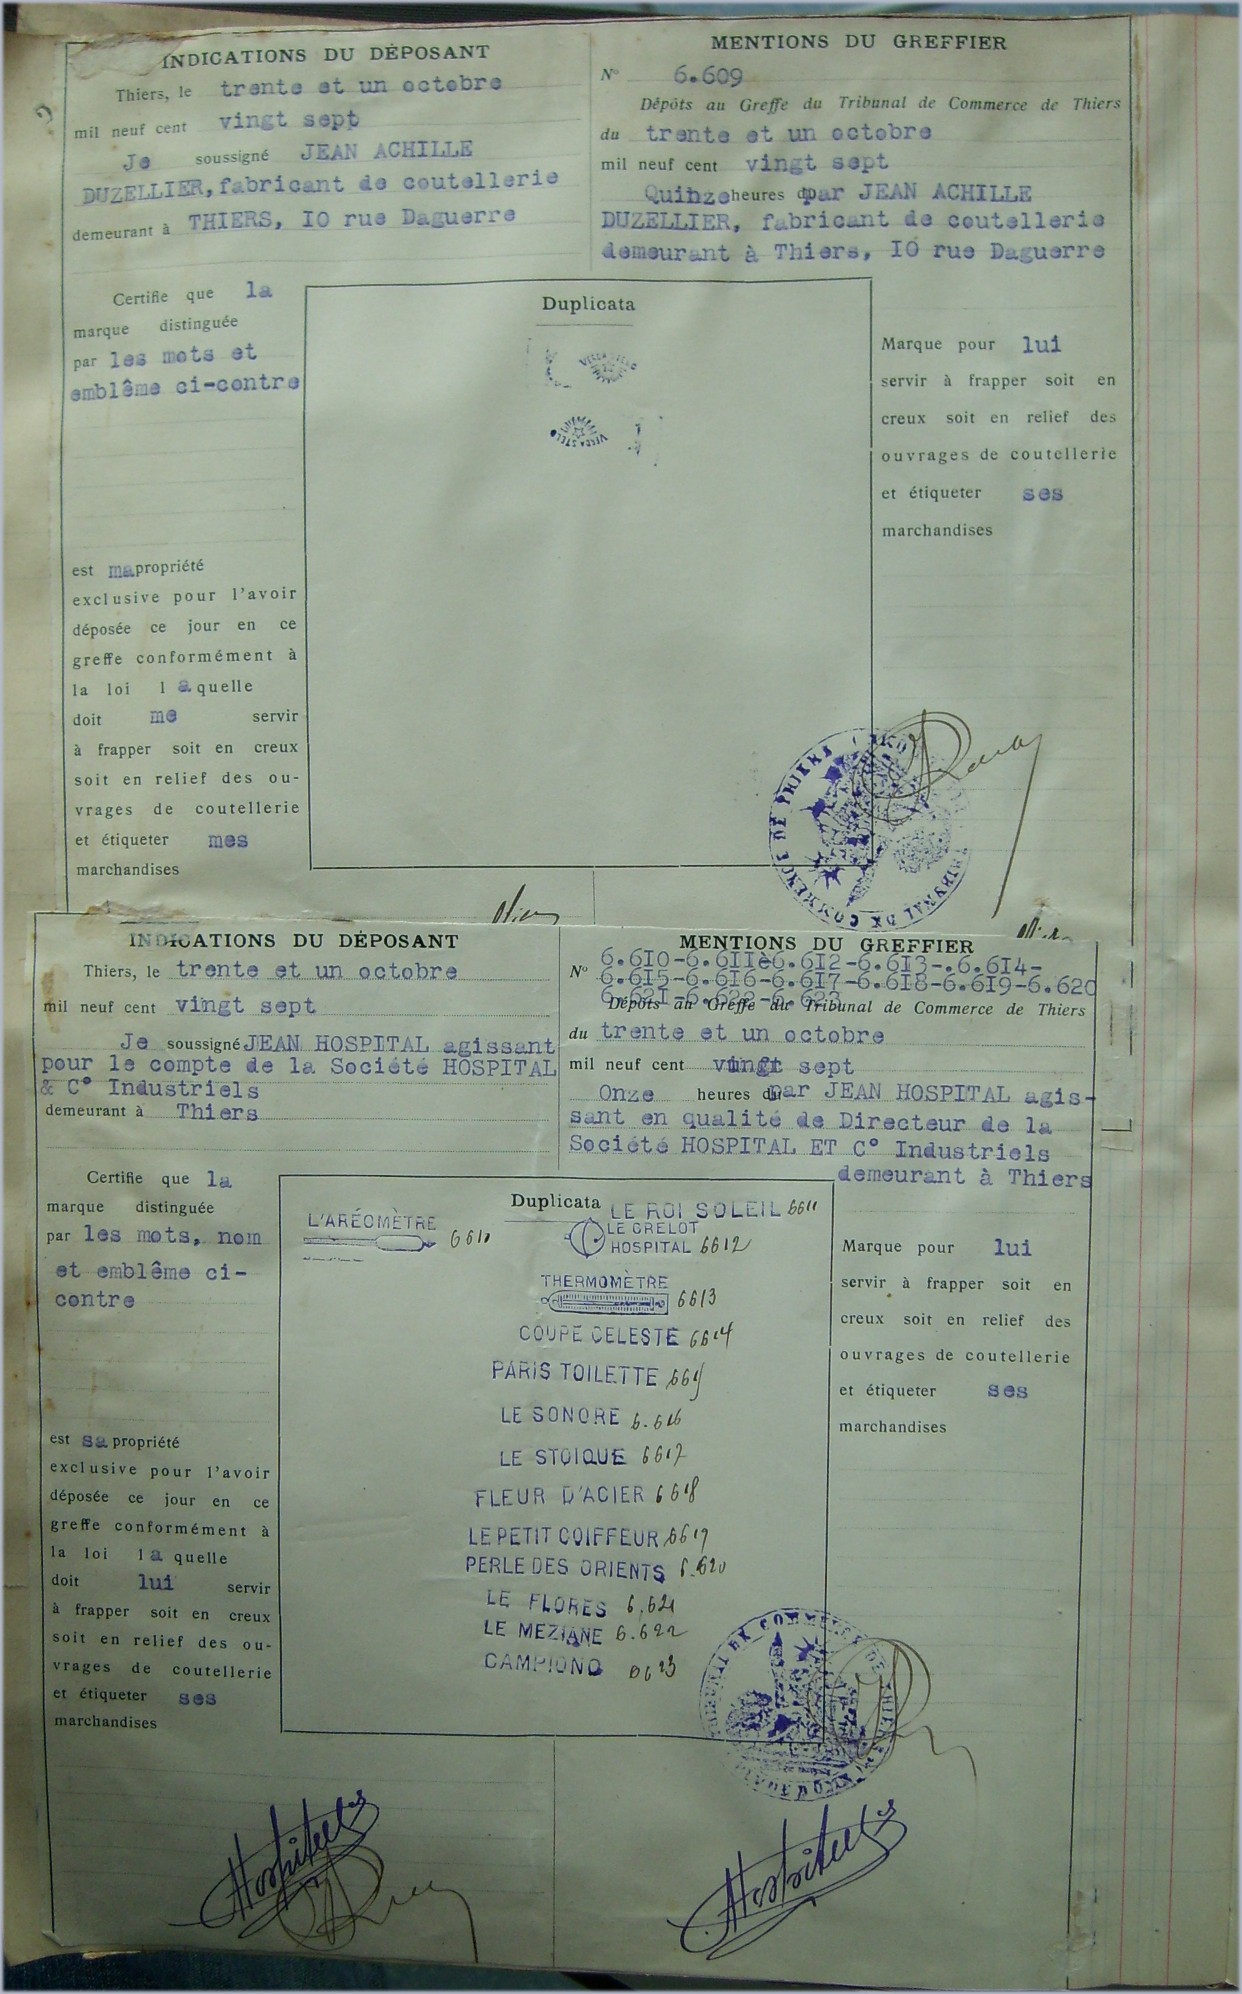 INDICATIONS DU DÉPOSANT
Thiers, le trente et un octobre
mil neuf cent vingt sept
Je soussigné JEAN ACHILLE
DUZELLIER, fabricant de coutellerie
demeurant à THIERS, IO rue Daguerre
MENTIONS DU GREFFIER
N° 6.609
Dépôts au Greffe du Tribunal de Commerce de Thiers
du trente et un octobre
mil neuf cent vingt sept
Quinze heures par JEAN ACHILLE
DUZELLIER, fabricant de coutellerie
demeurant à Thiers, IO rue Daguerre
Certifie que la
marque distinguée
par les mots et
emblême ci-contre
est ma propriété
exclusive pour l'avoir
déposée ce jour en ce
greffe conformément à
la loi laquelle
doit me servir
à frapper soit en creux
soit en relief des ou-
vrages de coutellerie
et étiqueter mes
marchandises
Duplicata
Marque pour lui
servir à frapper soit en
creux soit en relief des
ouvrages de coutellerie
et étiqueter ses
marchandises
INDICATIONS DU DÉPOSANT
Thiers, le trente et un octobre
mil neuf cent vingt sept
Je soussigné JEAN HOSPITAL agissant
pour le compte de la Société HOSPITAL
& C° Industriels
demeurant à Thiers
MENTIONS DU GREFFIER
N° 6.610-6.611è6.612-6.613-.6.614-
6.615-6.616-6.617-6.618-6.619-6.620
6.621-6.622-6.623
Dépôts au Greffe du Tribunal de Commerce de Thiers
du trente et un octobre
mil neuf cent vingt sept
Onze heures par JEAN HOSPITAL agis-
sant en qualité de Directeur de la
Société HOSPITAL ET C° Industriels
demeurant à Thiers
Certifie que la
marque distinguée
par les mots, nom
et emblême ci-
contre
est sa propriété
exclusive pour l'avoir
déposée ce jour en ce
greffe conformément à
la loi laquelle
doit lui servir
à frapper soit en creux
soit en relief des ou-
vrages de coutellerie
et étiqueter ses
marchandises
Duplicata
L'ARÉOMÈTRE 6610
LE ROI SOLEIL 6611
LE GRELOT
HOSPITAL 6612
THERMOMÈTRE
6613
COUPE CELESTE 6614
PARIS TOILETTE 6615
LE SONORE 6.616
LE STOIQUE 6617
FLEUR D'ACIER 6618
LE PETIT COIFFEUR 6619
PERLE DES ORIENTS 6.620
LE FLORES 6.621
LE MEZIANE 6.622
CAMPIONO 6623
Marque pour lui
servir à frapper soit en
creux soit en relief des
ouvrages de coutellerie
et étiqueter ses
marchandises
Hospital
Hospital